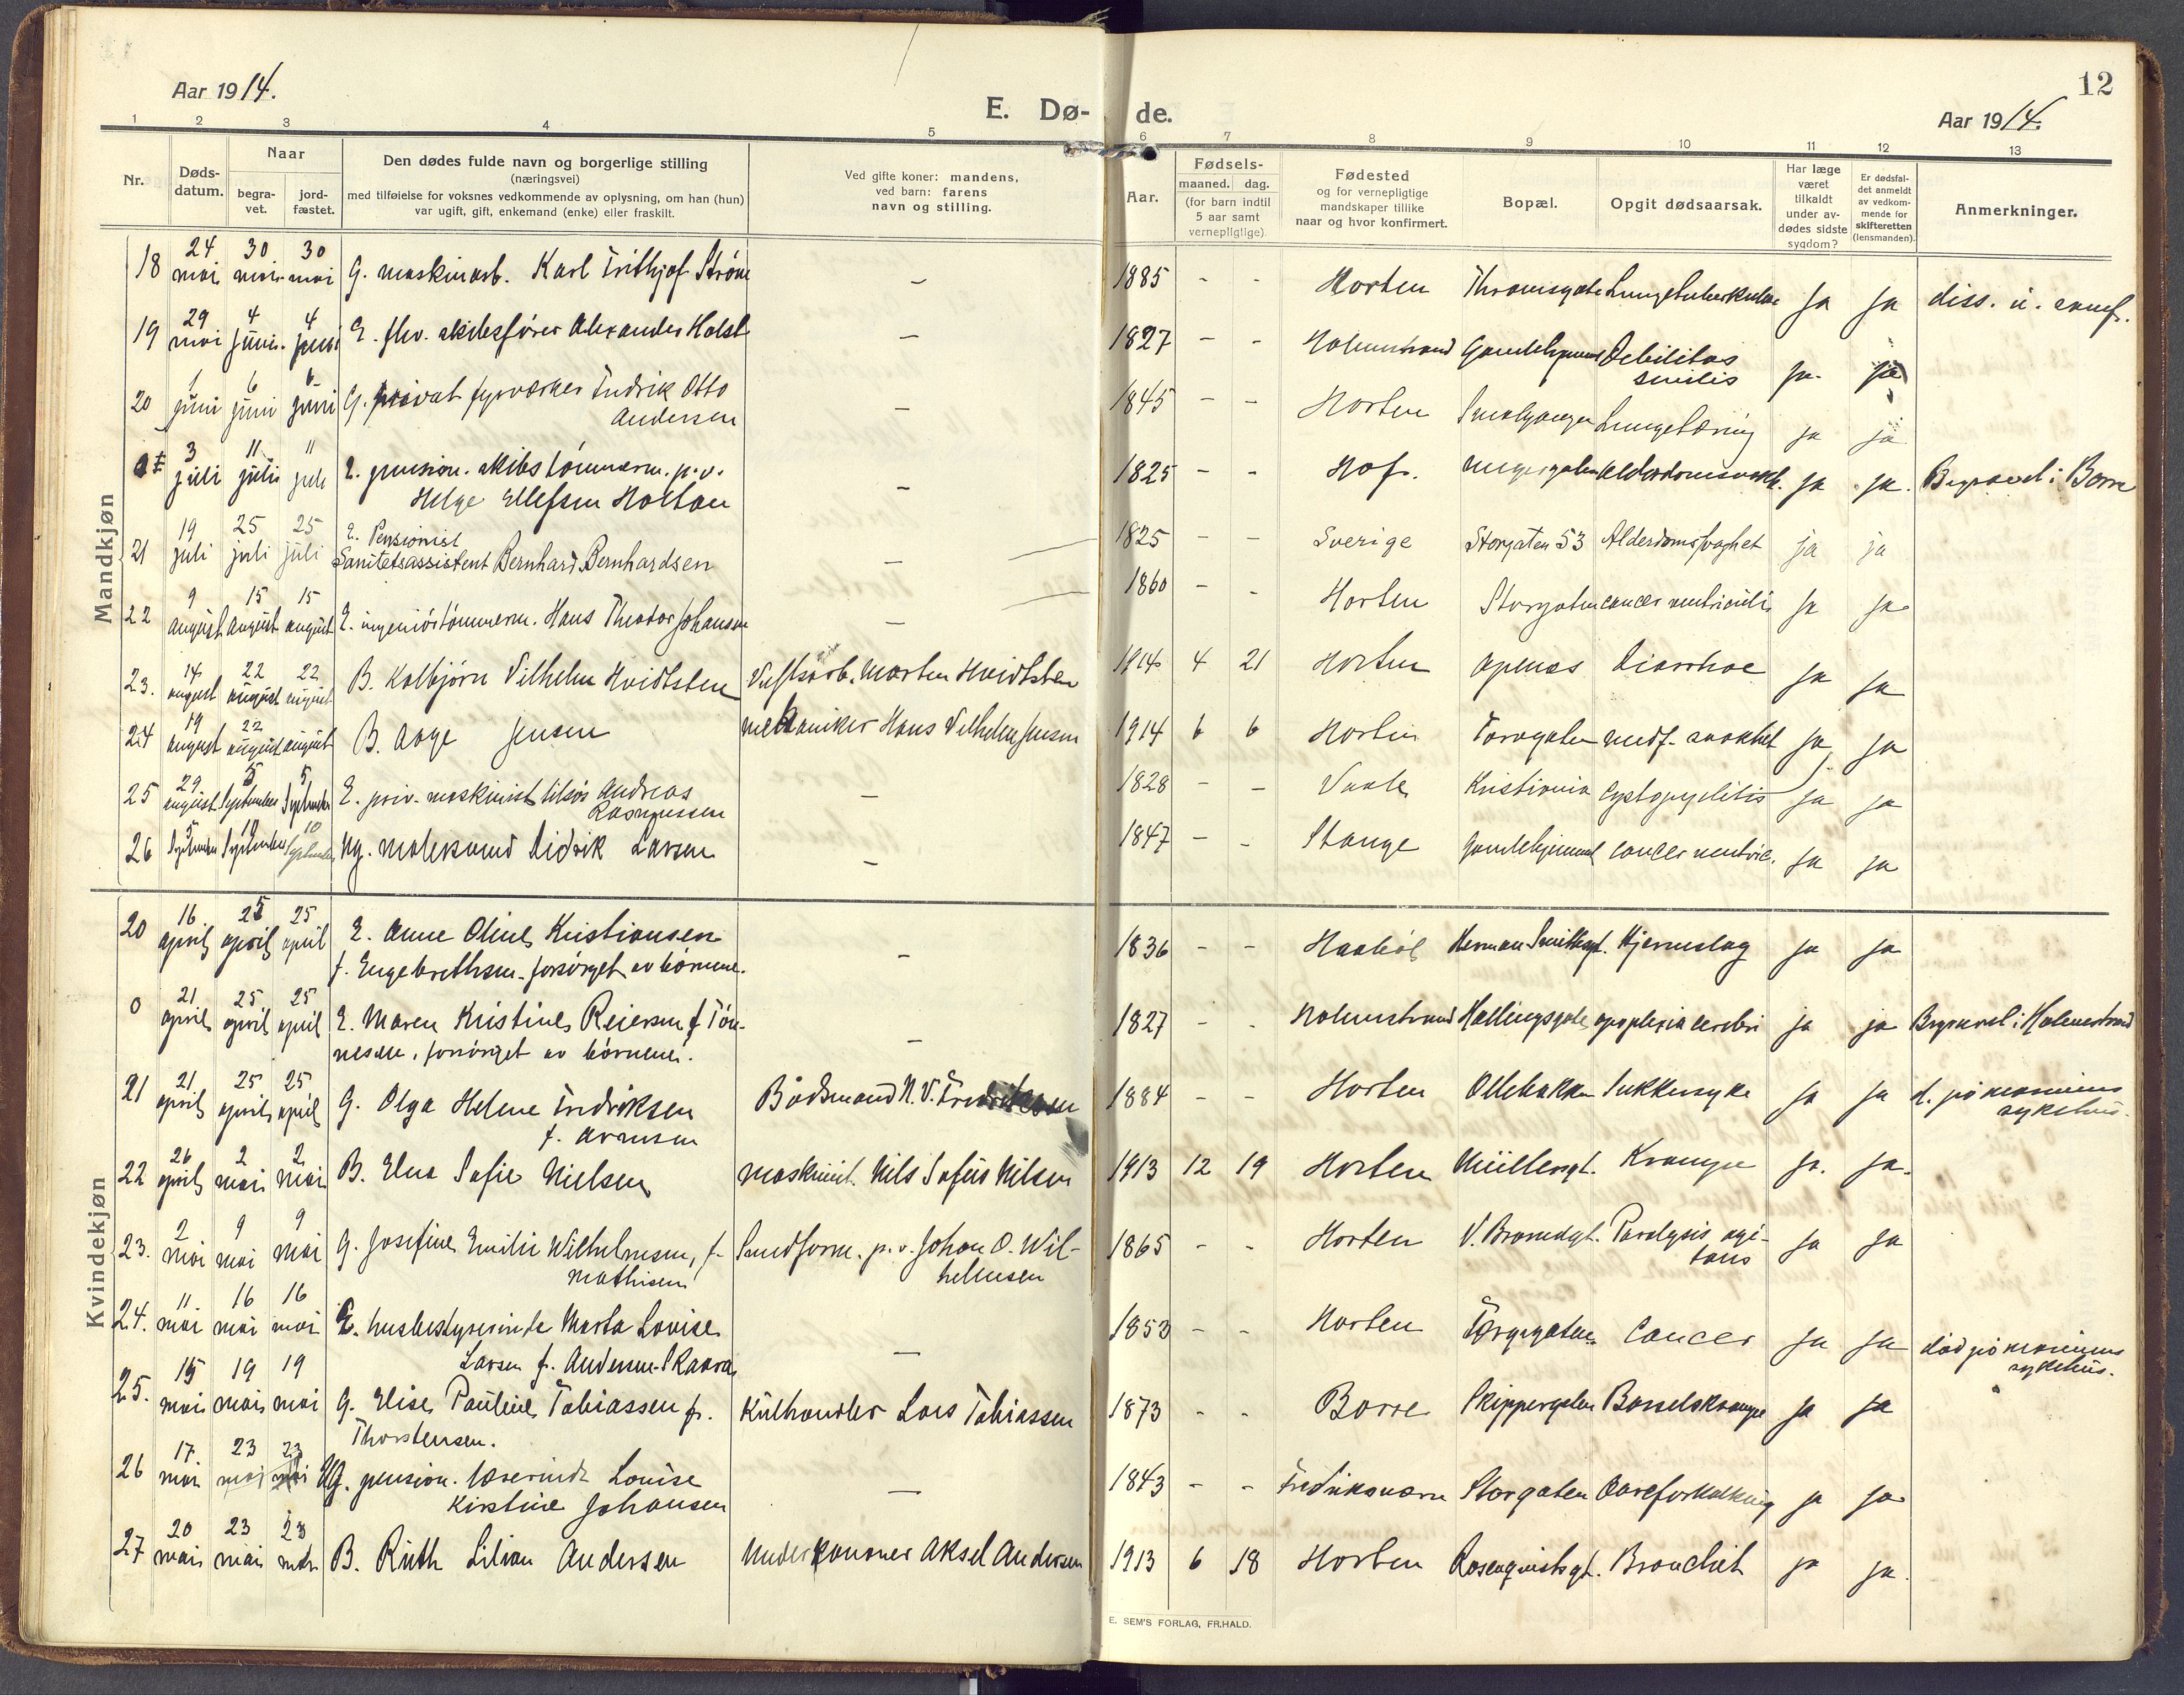 Aar 1914.
E. Dø- de.
12
Aar 1914.
1 2 3 4 5 6 7 8 9 10 11 12 13
Nr.
Døds-
datum.
Naar
begra-
vet.
jord-
fæstet.
Den dødes fulde navn og borgerlige stilling
(næringsvei)
med tilføielse for voksnes vedkommende av oplysning, om han (hun)
var ugift, gift, enkemand (enke) eller fraskilt.
Ved gifte koner: mandens,
ved barn: farens
navn og stilling.
Aar.
Fødsels-
maaned. dag.
(for barn indtil
5 aar samt
vernepligtige)
Fødested
og for vernepligtige
mandskaper tillike
naar og hvor konfirmert.
Bopæl.
Opgit dødsaarsak.
Har læge
været
tilkaldt
under av-
dødes sidste
sygdom?
Er dødsfal-
det anmeldt
av vedkom-
mende for
skifteretten
(lensmanden).
Anmerkninger.
Mandkjøn
18 24 mai 30 mai 30 mai G. maskinarb. Karl Frithjof Strøm — 1885 - - Horten Lungetuberkulose Ja Ja diss. u. samf.
19 29 mai 4 juni 4 juni E. fhv. skibsfører Alexander Holst — 1827 - - Holmestrand Gamlehjemmet Debilitas
senilis ja ja
20 1 juni 6 juni 6 juni G. privat fyrverker Fredrik Otto
Andersen — 1845 - - Horten Lungetæring ja ja
3 juli 11 juli 11 juli E. pension. skibstømmerm. p.v.
Helge Ellefsen Holtan — 1825 - - Hof. Alderdomssvakh. ja ja. Begravet i Borre
21 19 juli 25 juli 25 juli E. Pensionist
Sanitetsassistent Bernhard Bernhardsen — 1825 - - Sverige Storgaten 53 Alderdomssvaghet ja ja
22 9 august 15 august 15 august E. ingeniørtømmerm. Hans Theodor Johansen — 1860 - - Horten Storgaten cancer ventriculi ja ja
23. 14 august 22 august 22 august B. Kolbjørn Vilhelm Hvidtsten Verftsarb. Marten Hvidtsten 1914 4 21 Horten Apenes Diarrhoe ja ja
24 19 august 22 august august B. Aage Jensen mekaniker Hans Vilhelm Jensen 1914 6 6 Horten Torvgaten medf. svakhet ja ja
25 29 august 5 September 5 September E. priv. maskinist tilsjøs Andreas
Rasmussen — 1828 - - Vaale Kristiania Cystopyelitis ja ja
26 5 September 10 September 10 September Ug. malersvend Didrik Larsen — 1847 - - Stange Gamlehjemmet cancer ventric. ja ja
Kvindekjøn
20 16 april 25 april 25 april E. Anne Oline Kristiansen
f. Engebrethsen. forsørget av børnene. — 1836 - - Herman Smithsgt. Hjerneslag ja ja
0 21 april 25 april 25 april E. Maren Kristine Reiersen f. Tøn-
nesen, forsørget av børnene. — 1827 - - Holmestrand Hallingsgate apoplexia cerebri ja ja Begravet i Holmestrand
21 21 april 25 april 25 april G. Olga Helene Fredriksen
f. Arnesen Bådsmand N. V. Fredriksen 1884 - - Horten Ollebakken Sukkersyke ja ja d. på marinens
sykehus.
22 26 april 2 mai 2 mai B. Elna Sofie Nielsen maskinist. Nils Sofus Nilsen 1913 12 19 Horten Müllersgt. Krampe ja. ja.
23. 2 mai 9 mai 9 mai G. Josefine Emilie Wilhelmsen, f.
Mathisen Smedform. p.v. Johan O. Wil-
helmsen 1865 - - Horten V. Bromsgt. Paralysis agi-
tans ja ja
24. 11. mai 16 mai 16 mai E. husbestyrerinde Marta Lovise
Larsen f. Andersen-Skaara — 1853 - - Horten Torvgaten Cancer ja ja død på marinens
sykehus.
25. 15 mai 19 mai 19 mai G. Elise Pauline Tobiassen f.
Thorstensen. Kulhandler Lars Tobiassen 1873 - - Borre Skippergaten Barselskrampe ja ja
26 17. mai 23 mai 23 mai Ug. pension. lærerinde Louise
Kirstine Johansen — 1843 - - Fredriksværn Storgaten Aareforkalkning ja ja
27 20 mai 23 mai 23 mai B. Ruth Lilian Andersen Underkanoner Aksel Andersen 1913 6 18 Horten Rosenqvistsgt. Bronchit ja ja.
E. SEM'S FORLAG, FR.HALD.